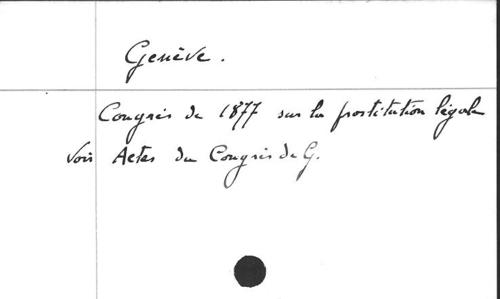 Genève.
Congrès de 1877 sur la prostitution légale
Voir Actes du Congrès de G.